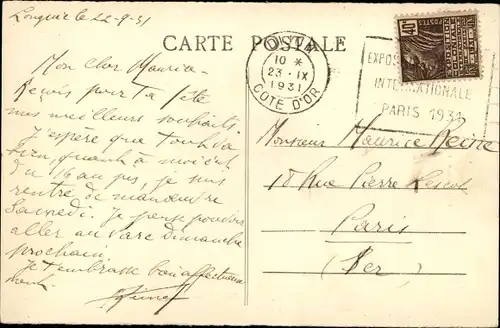 le 22-9-31
CARTE POSTALE
DIJON
10 *
23 - IX
1931
COTE D'OR
EXPOS
INTERNATIONALE
PARIS 1931
40c
POSTES
Mon cher Maurice
Reçois pour ta fête
mes meilleurs souhaits.
J'espère que tout va
bien, quant à moi c'est
du au pas, je suis
rentré de manœuvre
Samedi. Je pense pouvoir
aller au dimanche
prochain.
Je t'embrasse bien affectueuse
ment.
Monsieur Maurice Reine
18 Rue Pierre Lescot
Paris
(1er)